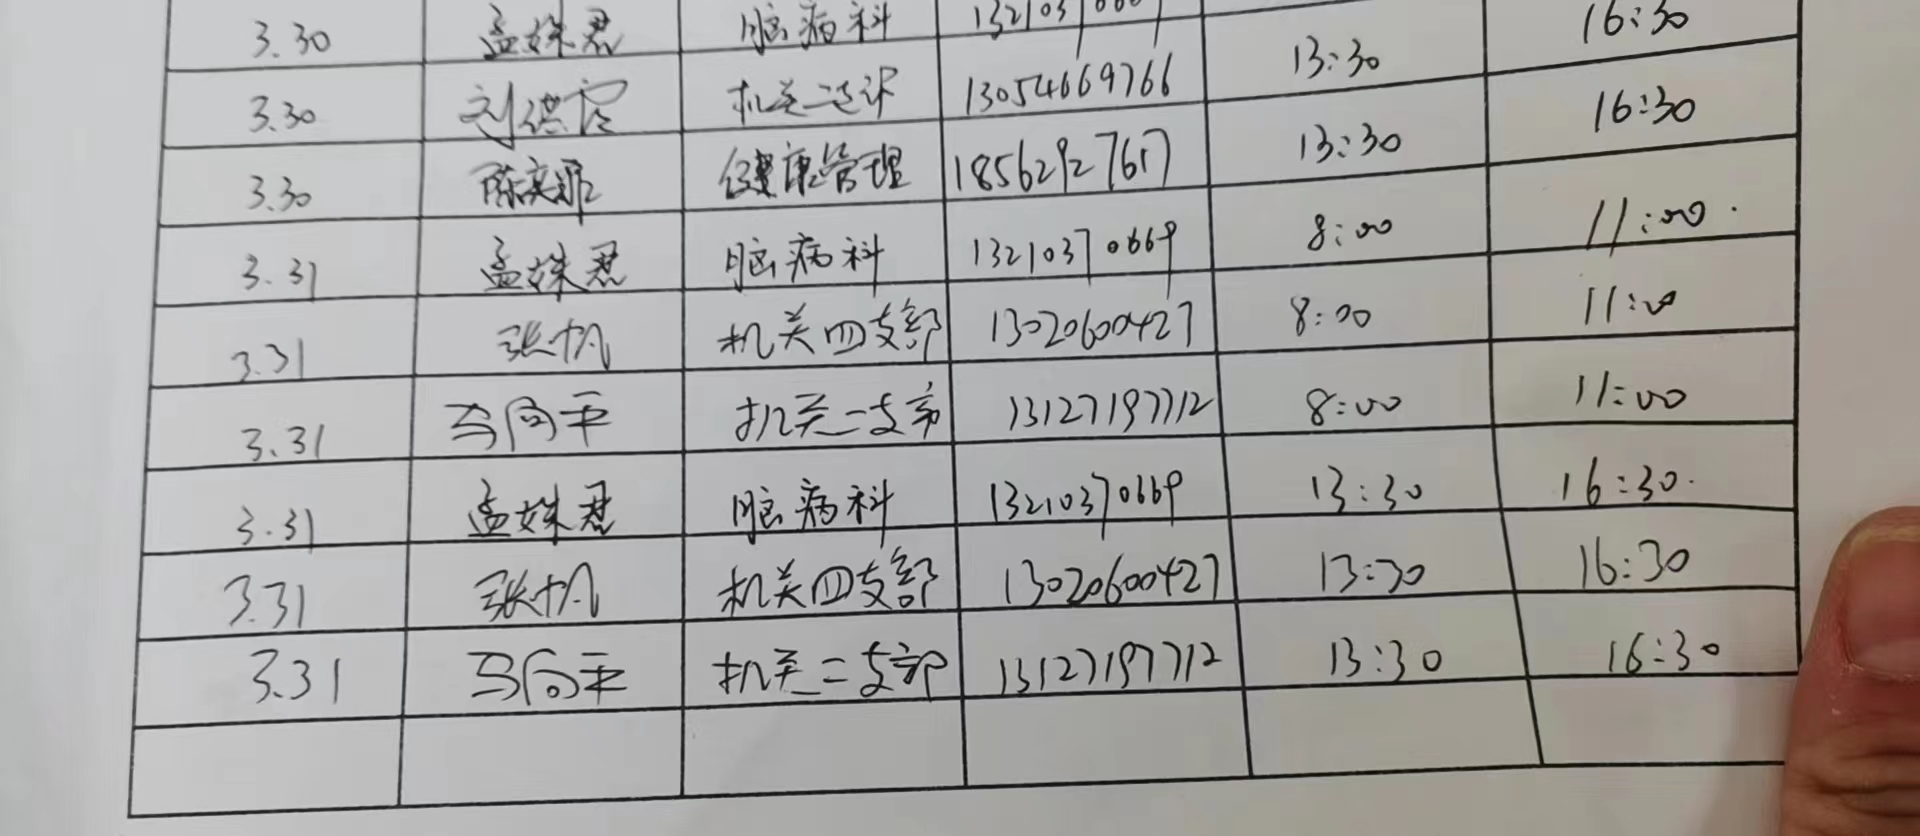 3.30 孟姝君 脑病科 13210370669 16:30
3.30 刘 机关二支部 13054669766 13:30 16:30
3.30 陈 健康管理 18562927617 13:30
3.31 孟姝君 脑病科 13210370669 8:00 11:00
3.31 张帆 机关四支部 13020600427 8:00 11:00
3.31 马向平 机关二支部 13127197712 8:00 11:00
3.31 孟姝君 脑病科 13210370669 13:30 16:30
3.31 张帆 机关四支部 13020600427 13:30 16:30
3.31 马向平 机关二支部 13127197712 13:30 16:30